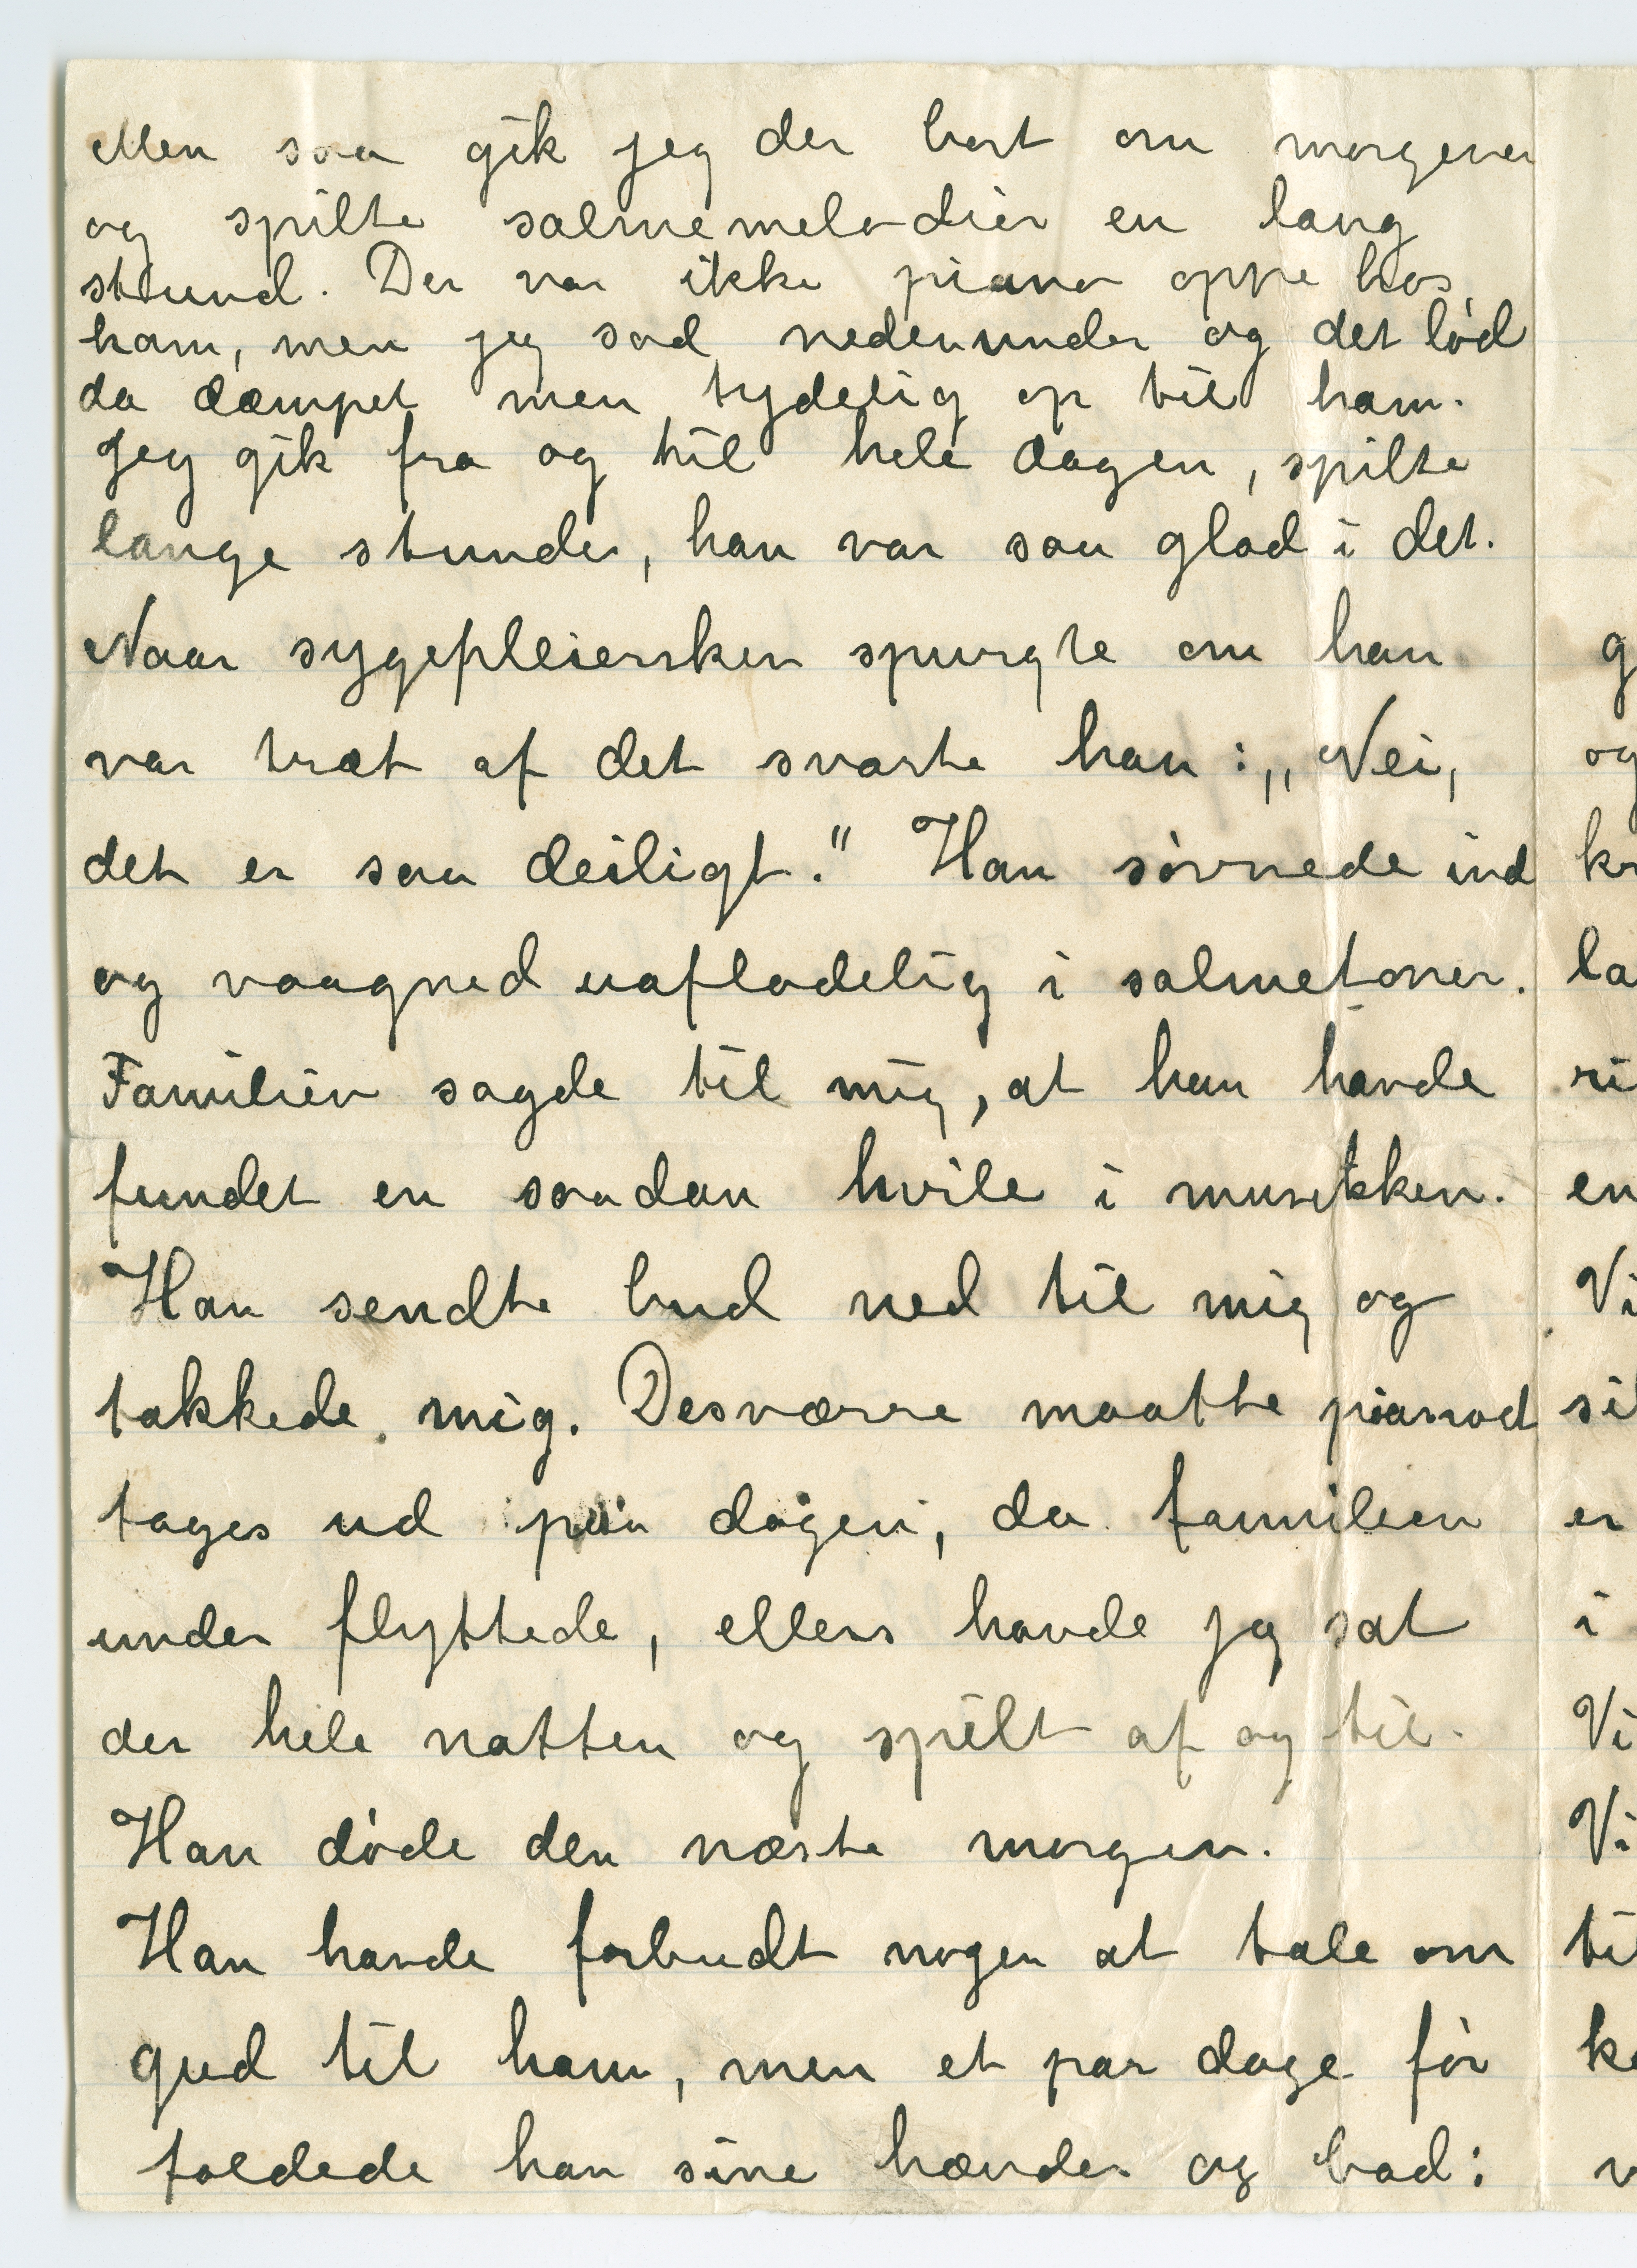 Men saa gik jeg der bort om morgenen
og spilte salmemelodier en lang
stund. Der var ikke piano oppe hos
ham, men jeg sad nedenunder og det lød
da dæmpet men tydelig op til ham.
Jeg gik fra og til hele dagen, spilte
lange stunder, han var saa glad i det.
Naar sygepleiersken spurgte om han
var træt af det svarte han: „Nei,
det er saa deiligt." Han søvnede ind
og vaagned uafladelig i salmetoner.
Familien sagde til mig, at han havde
fundet en saadan hvile i musikken.
Han sendte bud ned til mig og
takkede mig. Desværre maatte pianoet
tages ud paa dagen, da familien
under flyttede, ellers havde jeg sat
der hele natten og spilt af og til.
Han døde den næste morgen.
Han havde forbudt nogen at tale om
gud til ham, men et par dage før
foldede han sine hænder og bad:
g
og
kr
la
ri
en
Vi
sil
er
i
Vi
Vi
til
ke
v